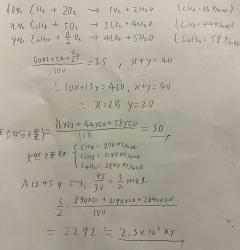 60% CH₄ + 2O₂ → CO₂ + 2H₂O (CH₄=16g/mol)
x% C₃H₈ + 5O₂ → 3CO₂ + 4H₂O (C₃H₈=44g/mol)
y% C₄H₁₀ + 13/2 O₂ → 4CO₂ + 5H₂O (C₄H₁₀=58g/mol)
(60×2+5x+13/2 y)/100 = 3.5, x+y=40
∴ 10x+13y=460, x+y=40
∴ x=20, y=20
(16×60+44×20+58×20)/100 = 30
CH₄=890kJ/mol
C₃H₈=2190kJ/mol
C₄H₁₀=2840kJ/mol
45/30 = 3/2 mol
3/2 · (890×60+2190×20+2840×20)/100
= 2292 ≒ 2.3×10³ kJ